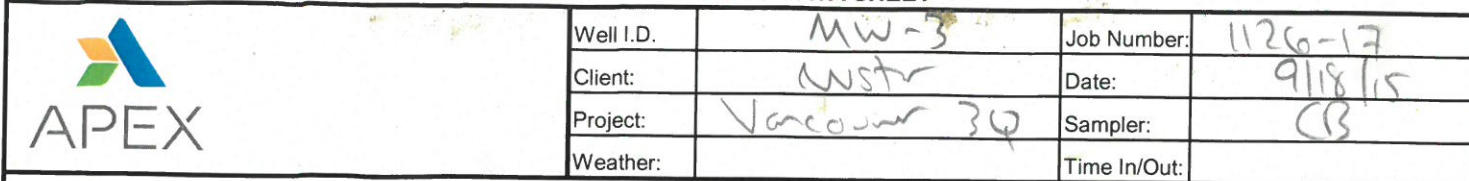 Well I.D. MW-3 Job Number: 1126-17
Client: Date: 9/18/15
APEX
Project: Vancouver 3Q Sampler: CB
Weather: Time In/Out: